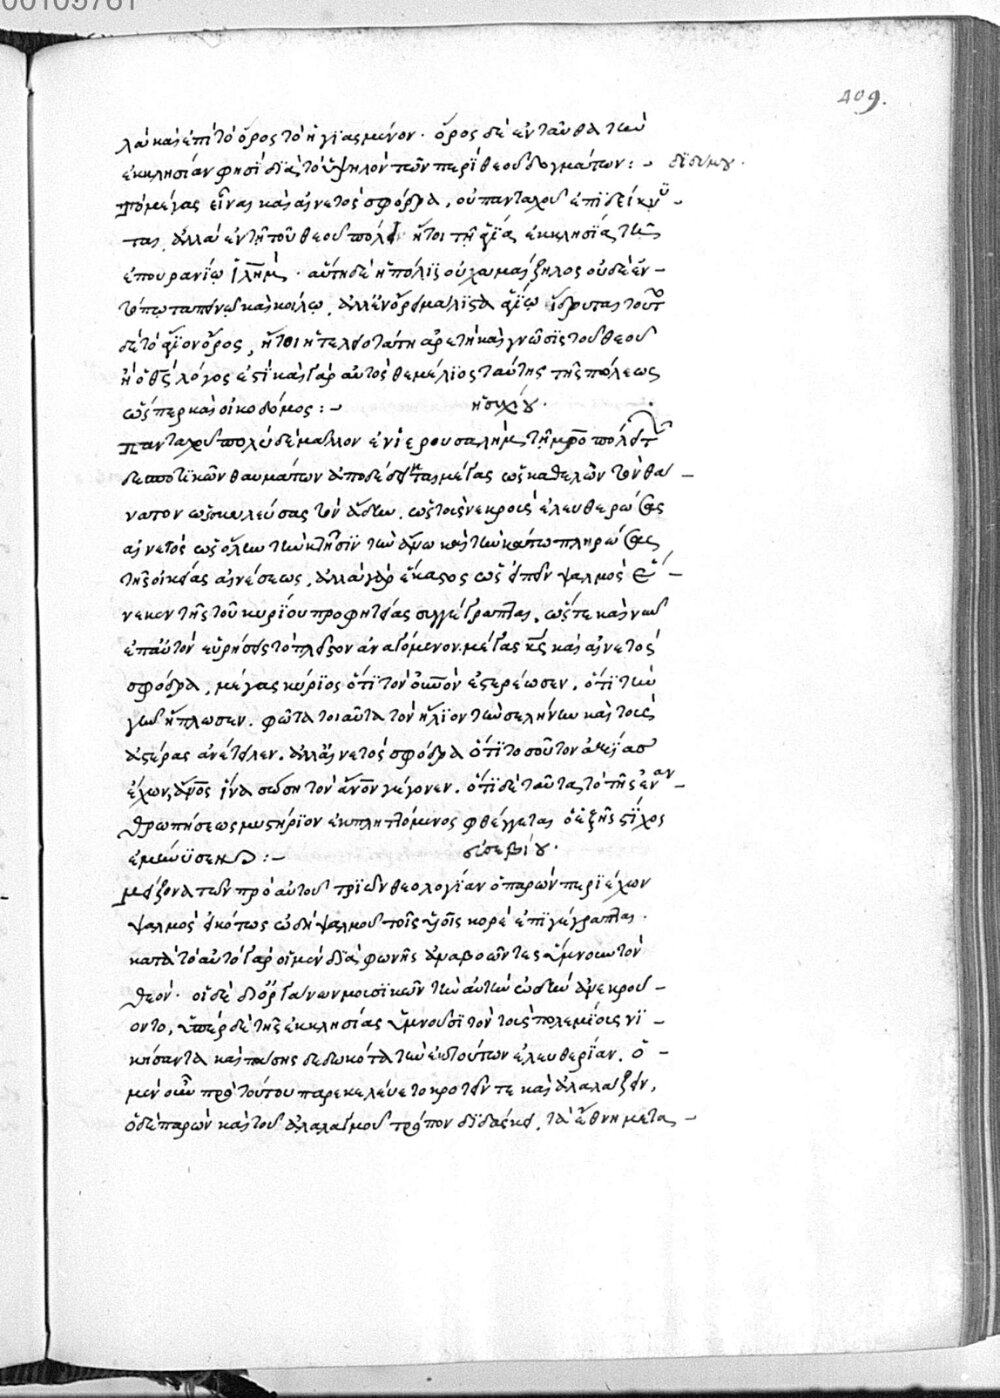 00105761
409.
λὰ καὶ ἐπὶ τὸ ὄρος τὸ ἡγιασμένον. ὄρος δὲ ἐνταῦθα τὴν
ἐκκλησίαν φησὶ διὰ τὸ ὑψηλὸν τῶν περὶ θεοῦ δογμάτων: – διδύμου.
Τὸ μέγας εἶναι καὶ αἰνετὸς σφόδρα, οὐ πανταχοῦ ἐπιδείκνυ–
ται, ἀλλὰ ἐν τῇ τοῦ θεοῦ πόλει ἤτοι τῇ ἁγίᾳ ἐκκλησίᾳ τῆς
ἐπουρανίῳ ἰλῆμ. αὕτη δὲ ἡ πόλις οὐ χαμαίζηλος οὐδὲ ἐν–
τόπῳ ταπεινῷ καὶ κοίλῳ, ἀλλ' ἐν ὄρει μάλιστα ἁγίῳ ἵδρυται τοῦτο
δὲ τὸ ἅγιον ὄρος, ἤτοι ἡ τελειοτάτη ἀρετὴ καὶ γνῶσις τοῦ θεοῦ
ἢ ὁ θς λόγος ἐστὶ καὶ γὰρ αὐτὸς θεμέλιος ταύτης τῆς πόλεως
ὥσπερ καὶ οἰκοδόμος: – ἡσυχίου.
Πανταχοῦ πολὺ δὲ μᾶλλον ἐν ἱερουσαλὴμ τῇ μρο πόλει τῶν
δεσποτικῶν θαυμάτων ἀποδέδεικται μέγας ὡς καθελὼν τὸν θά–
νατον ὡς σκυλεύσας τὸν ἅδην. ὡς τοὺς νεκροὺς ἐλευθερώσας
αἰνετὸς ὡς ὅλην τὴν κτῆσιν τὴν ἄνω καὶ τὴν κάτω πληρώσας
τῆς οἰκείας αἰνέσεως. ἀλλὰ γὰρ ἕκαστος ὡς εἰπεῖν ψαλμὸς ἕ–
νεκεν τῆς τοῦ κυρίου προφητείας συγγέγραπται. ὥστε καὶ νῦν
ἐπ' αὐτὸν εὑρήσεις τὸ πλεῖον ἀναγόμενον. μέγας κς καὶ αἰνετὸς
σφόδρα. μέγας κύριος ὅτι τὸν οὐνον ἐστερέωσεν. ὅτι τὴν
γῆν ἥπλωσεν. φῶτα τοιαῦτα τὸν ἥλιον τὴν σελήνην καὶ τοὺς
ἀστέρας ἀνέτειλεν. ἀλλ' αἰνετὸς σφόδρα ὅτι τοσοῦτον ἀξίας
ἔχων, ἄνος ἵνα σώσῃ τὸν ἄνον γέγονεν. ὅτι δὲ ταῦτα τὸ τῆς ἐναν–
θρωπήσεως μυστήριον ἐκπληττόμενος φθέγγεται ὁ ἑξῆς στίχος
ἐμήνυσεν: – εὐσεβίου.
Μείζονα τῶν πρὸ αὐτοῦ τριῶν θεολογίαν ὁ παρὼν περιέχων
ψαλμὸς εἰκότως ᾠδὴ ψαλμοῦ τοῖς υἱοῖς κορὲ ἐπιγέγραπται.
κατὰ τὸ αὐτὸ γὰρ οἱ μὲν διὰ φωνῆς ἀναβοῶντες ὕμνουν τὸν
θεόν. οἱ δὲ δι' ὀργάνων μουσικῶν τὴν αὐτὴν ᾠδὴν ἀνεκρού–
οντο, ὑπὲρ δὲ τῆς ἐκκλησίας ὑμνοῦσι τὸν τοὺς πολεμίους νι–
κήσαντα καὶ πάσης δεδωκότα τὴν ἐκ τούτων ἐλευθερίαν. ὁ –
μὲν οὖν πρὸ τούτου παρεκελεύετο κροτεῖν τε καὶ ἀλαλάζειν,
ὁ δὲ παρὼν καὶ τοῦ ἀλαλαγμοῦ τρόπον διδάσκει, τὰ ἔθνη μετα–